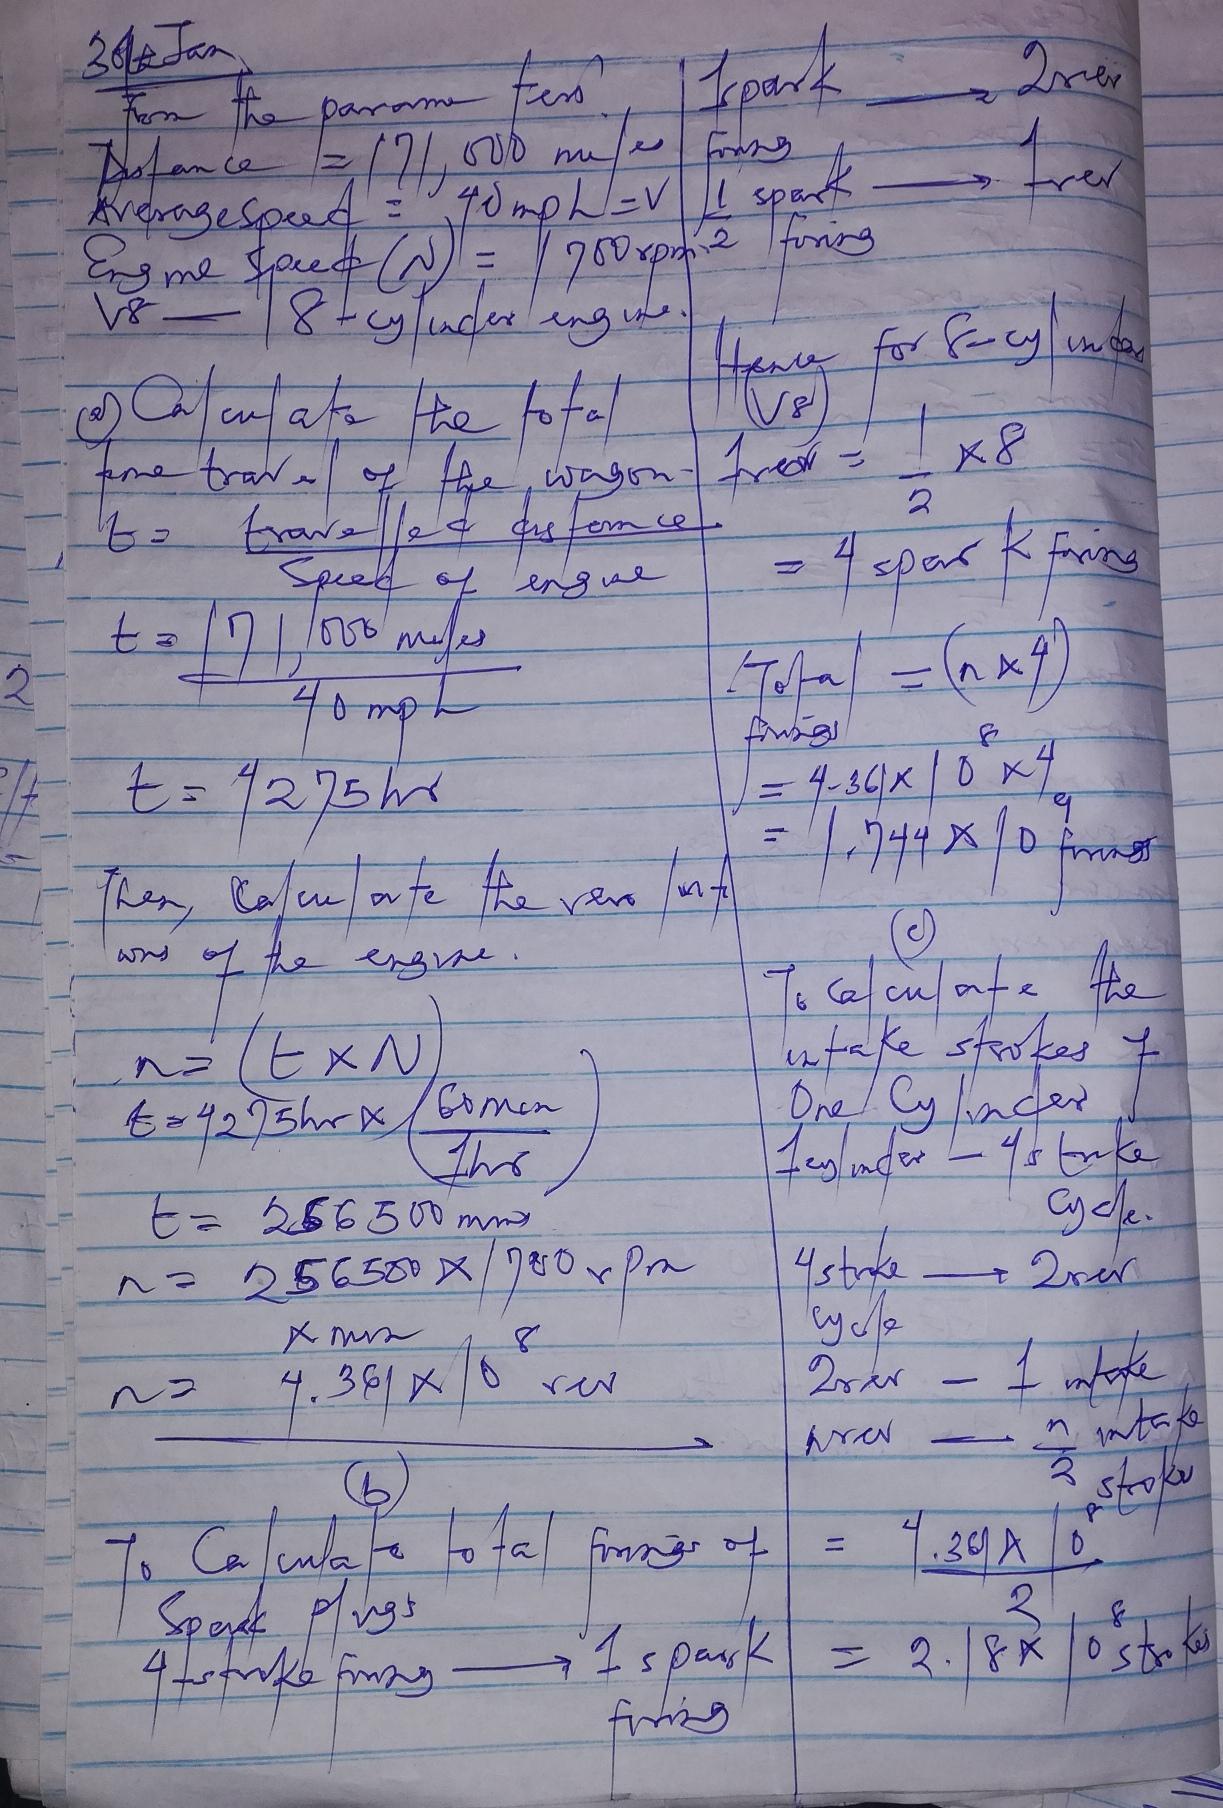 30th Jan
From the parameters
Distance = 171,000 miles
Average speed = 40mph = V
Engine Speed (N) = 1700rpm
V8 — 8-cylinder engine.
(a) Calculate the total
time travel of the wagon
t = travelled distance
Speed of engine
t = 171,000 miles
40 mph
t = 4275hr
Then, Calculate the revolut
ions of the engine.
n = (t x N)
t = 4275hr x (60min
1hr)
t = 256500 mins
n = 256500 x 1700 rpm
x min
n = 4.361 x 10^8 rev
(b)
To Calculate total firings of
Spark plugs
4-stroke firing → 1 spark
firing
1 spark → 2rev
firing
1/2 spark → 1rev
firing
Hence for 8-cylinder
(V8)
1rev = 1/2 x 8
= 4 spark firing
Total = (n x 4)
firings
= 4.361 x 10^8 x 4
= 1.744 x 10^9 firings
(c)
To Calculate the
intake strokes of
One Cylinder
1 cylinder - 4 stroke
Cycle.
4 stroke → 2rev
cycle
2rev - 1 intake
nrev — n/2 intake
stroke
= 4.361 x 10^8
2
= 2.18 x 10^8 strokes